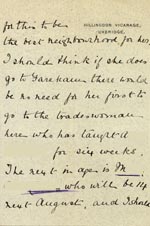 HILLINGDON VICARAGE,
UXBRIDGE.
for this to be
the best neighbourhood for her,
I should think if she does
go to Fareham there would
be no need for her first to
go to the tradeswoman
here who has taught
for six weeks.
The next in age is M
who will be 14
next August, and I should